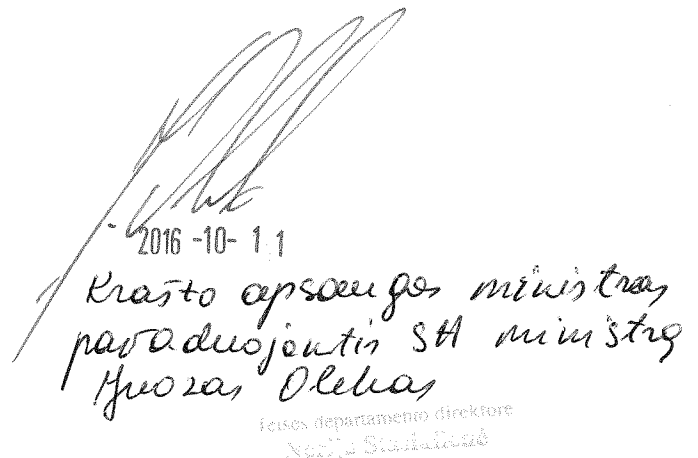 2016 -10- 11
Krašto apsaugos ministras
pavaduojantis SA ministrą
Juozas Olekas
Teisės departamento direktorė